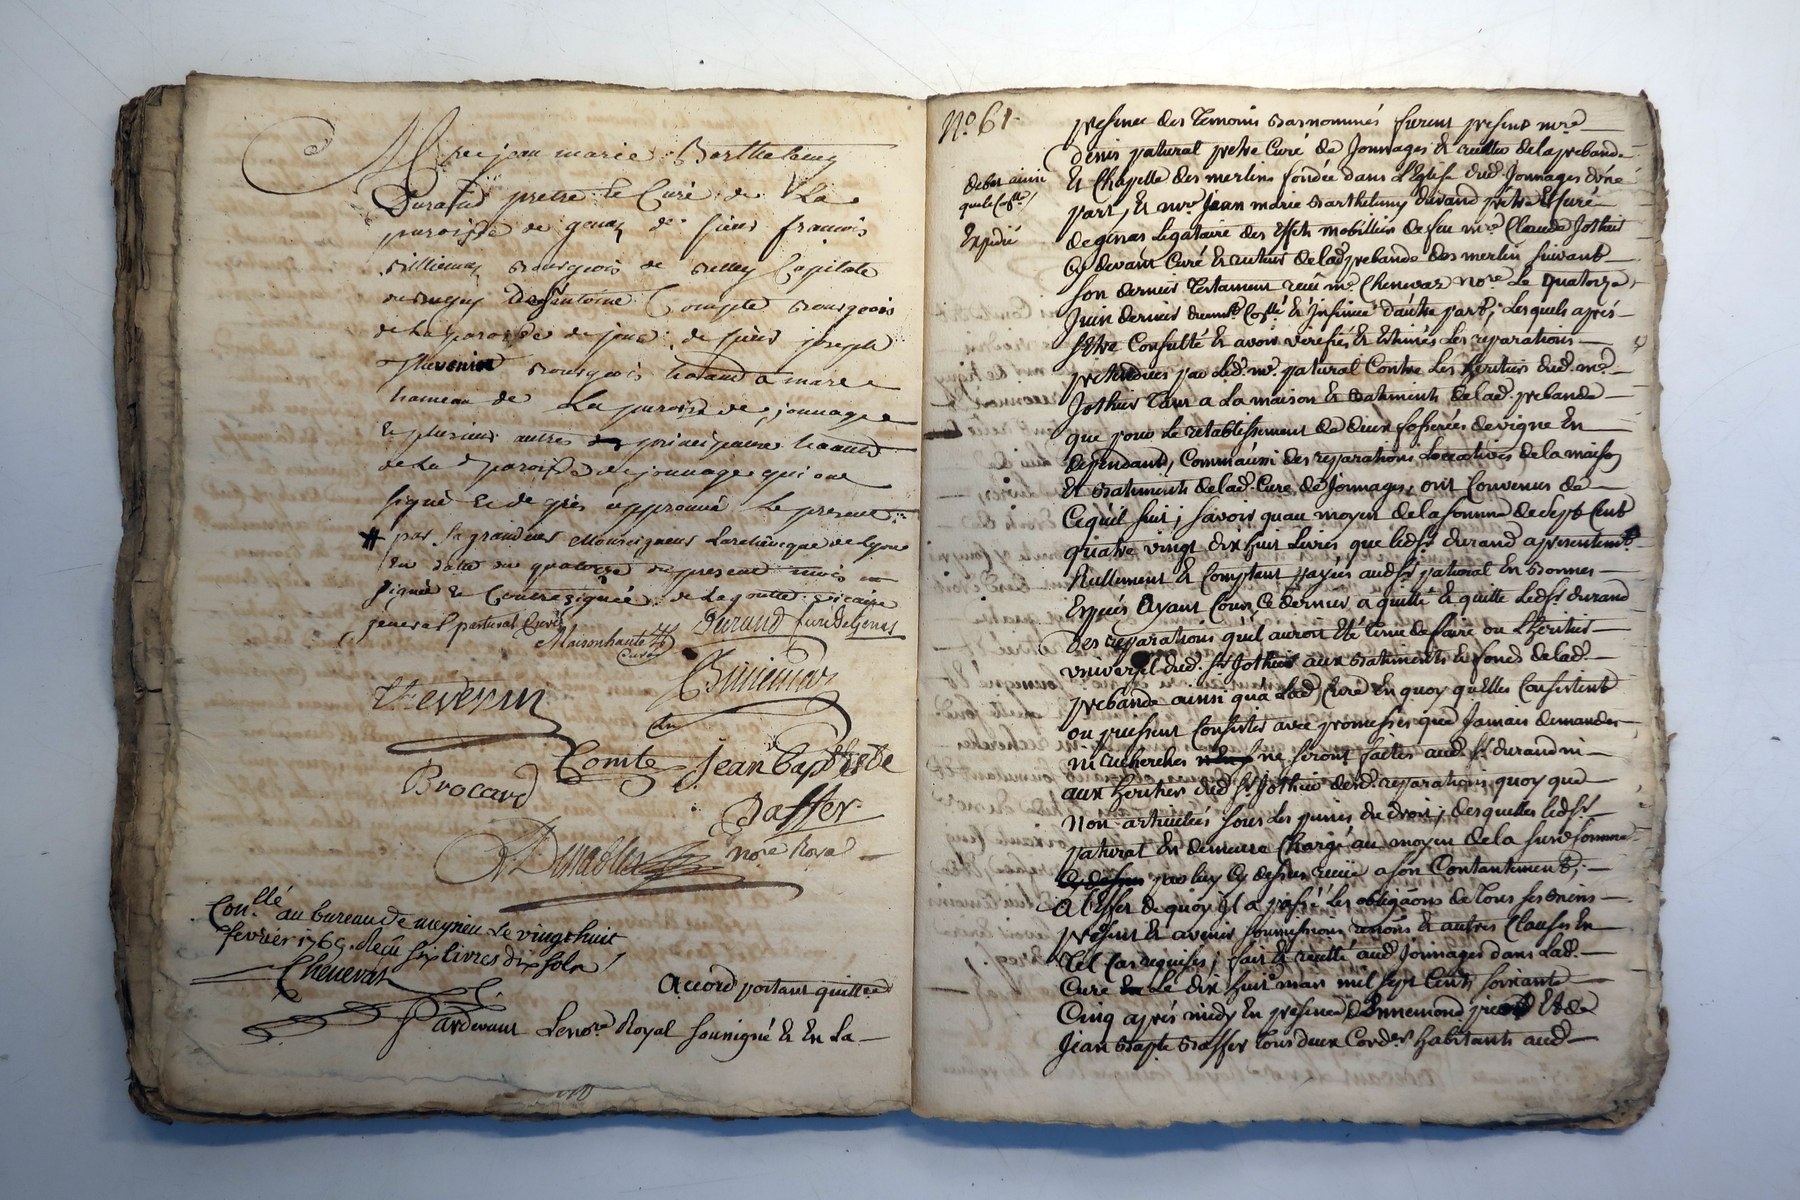 Mre jean marie Barthelemy
Durand pretre et Curé de La
paroisse de genas de sieur francois
bourgeois de
de St antoine Compte bourgeois
de la paroisse de de sieur joseph
Thevenin bourgeois habitant a mare
hameau de La paroisse de jonnage
& plusieurs autres principaux habitants
de La d paroisse de jonnage qui ont
signé & de gré approuvé le present
# par sa grandeur Monseigneur Larchevecque de Lyon
en datte du quatorze du present mois
signée & Contresignée de Lagoutte vicaire
general patural Curé
Maisonhaute Durand Curé de Genas
Curé
Thevenin
Comte Jean Baptiste
Brocard
Baffer
Dinablet nore Royal
Con.llé au bureau de meyrieu Le vingt huit
fevrier 1765. Reçu six livres dix sols
Chenevas
Accord portant quittce
Pardevant Le nore Royal soussigné & En La
No. 61
presence des temoins bas nommés furent presents mre
Denis patural pretre Curé de Jonnages & recteur de la prebande
debet ainsi
que le Coslle
Expedié
& Chapelle des merlins fondée dans L'Eglise dud. Jonnages d'une
part, & mre Jean marie Barthelemy durand pretre & curé
de genas Legataire des Effets mobilliers de feu mre Claude Jothier
Cy devant Curé & recteur de lad. prebande des merlin suivant
son dernier Testament receu me Chenevas nore Le quatorze
Juin dernier duement Coslé & Insinué d'autre part; Lesquels après
s'Etre Consulté & avoir verifiés & Estimés Les reparations
pretendues par led. mre patural Contre Les heritiers dud. mre
Jothier Tant a La maison & batiments de lad. prebande
que pour Le retablissement de deux fosserées de vigne En
dependants, Comm'aussi des reparations Locatives de la maison
& batiments de lad. Cure de Jonnages, ont Convenus de
Ce qui suit; savoir qu'au moyen de la somme de sept Cent
quatre vingt dix huit livres que led. sr durand a presentemt
Reellement & Comptant payées aud. sr patural En bonnes
Especes Ayant Cours, Ce dernier a quitté & quitte led. sr durand
des reparations qu'il auroit Eté tenu de faire ou L'heritier
universel dud. sr Jothier aux batiments & fonds de lad.
prebande ainsi qu'a Lad. Cure En quoy qu'Elles Consistent
ou puissent Consister avec promesses que Jamais demandes
ni recherches ne seront faites aud. sr durand ni
aux heritiers dud. sr Jothier desd. reparations quoy que
Non articulées sous Les peines du droit; desquelles led. sr
patural En demeure Chargé au moyen de la susd. somme
par luy Cy dessus reçue a son Contantement;
A L'Effet de quoy Il a passé Les obligaons de Tous ses biens
presents & avenir soumissions renons & autres Clauses En
Tel Cas requises; fait & recitté aud. Jonnages dans Lad.
Cure Le dix huit mars mil sept Cent soixante
Cinq après midy En presence d'Ennemond & de
Jean Bapte Baffer Tous deux Corders habitants aud.